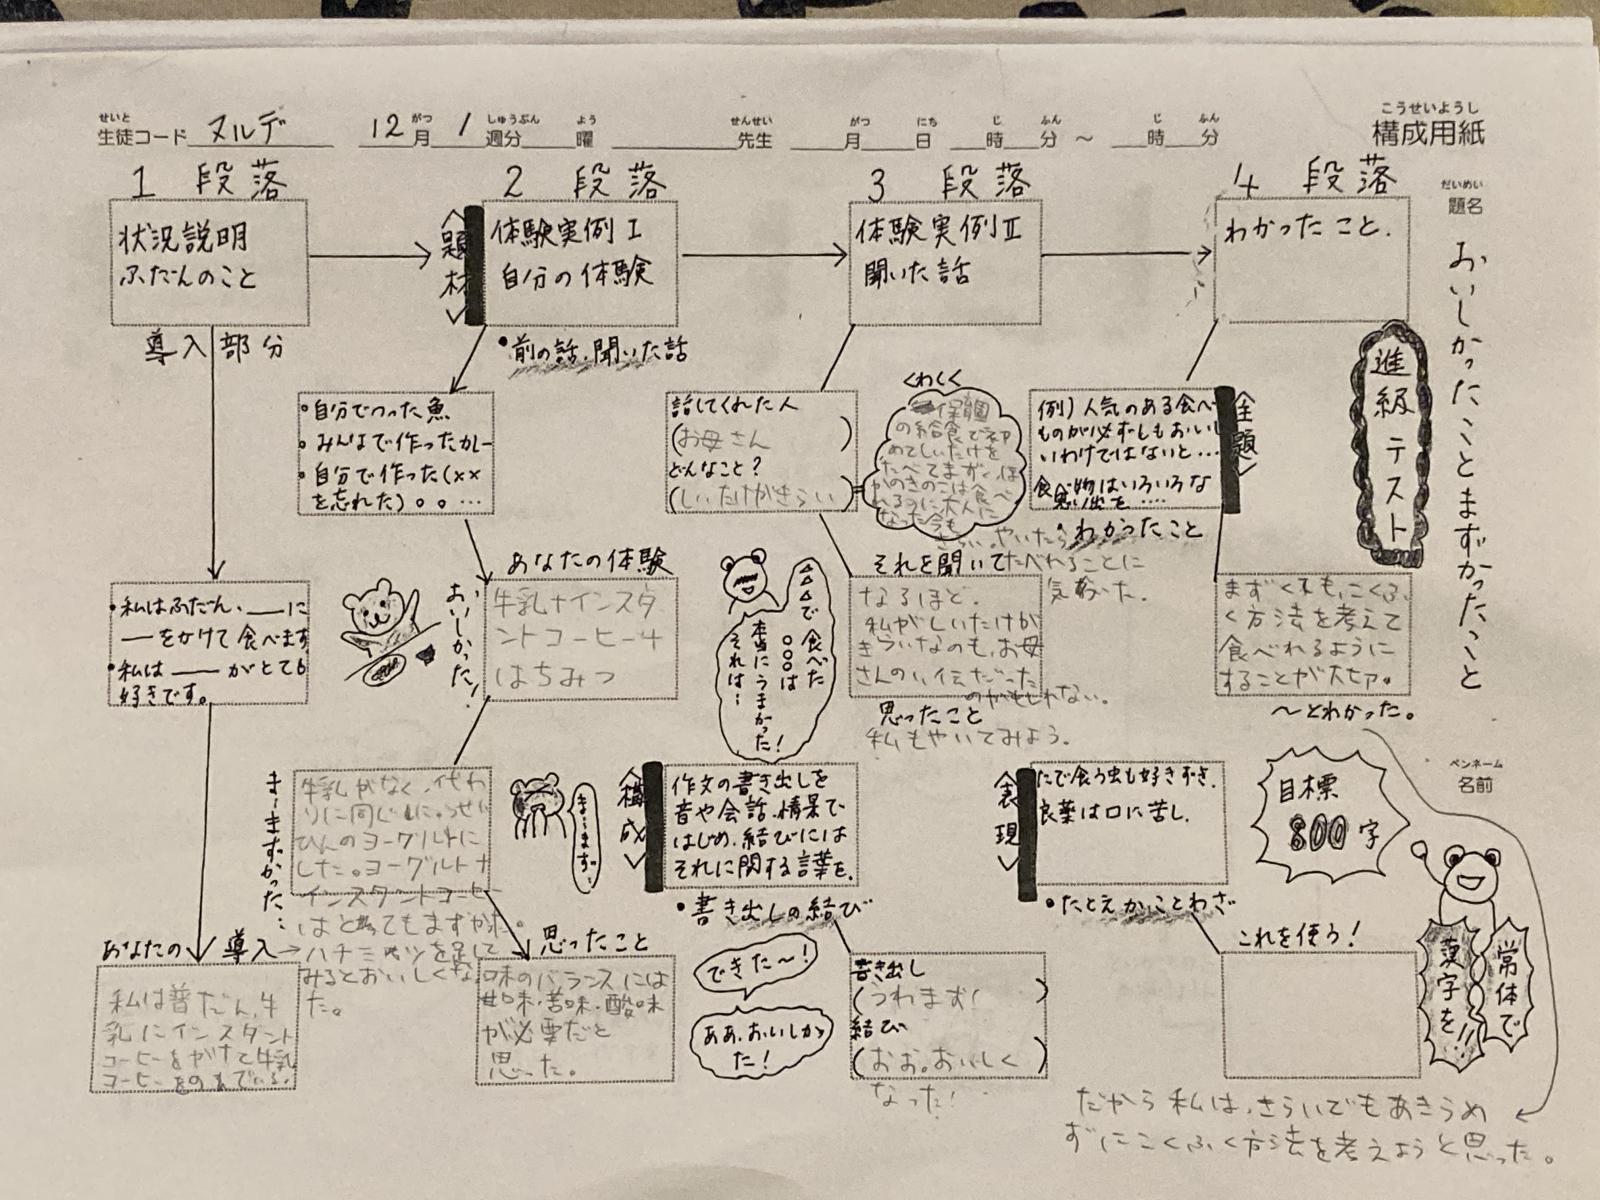 せいと がつ しゅうぶん よう せんせい がつ にち じ ふん じ ふん
生徒コード ヌルデ 12月 1週分 曜 先生 月 日 時 分 ～ 時 分
こうせいようし
構成用紙
だいめい
題名
おいしかったこととまずかったこと
進級テスト
1 段落
状況説明
ふだんのこと
導入部分
・私はふだん、――に
――をかけて食べます
・私は――がとても
好きです。
あなたの導入→
私は普だん、牛
乳にインスタント
コーヒーをかけて牛乳
コーヒーをのんでいる。
2 段落
〈題材〉
体験実例Ⅰ
自分の体験
・前の話、聞いた話
・自分でつった魚
・みんなで作ったカレー
・自分で作った(××
を忘れた)○○ …
あなたの体験
おいしかった!
牛乳+インスタ
ントコーヒー+
はちみつ
まーまずかった…
牛乳がなく、代わ
りに同じ
ひんのヨーグルトに
した。ヨーグルト+
インスタントコーヒー
はとてもまずかった。
ハチミツを足して
みるとおいしくなっ
た。
まーまず、
思ったこと
味のバランスには
甘味・苦味・酸味
が必要だと
思った。
3 段落
体験実例Ⅱ
聞いた話
話してくれた人
(お母さん)
どんなこと?
(しいたけがきらい)
くわしく
保育園
の給食で初
めてしいたけを
たべてまずく、ほ
かのきのこは食べ
れるうに大人に
なった今も
きらい。やいたら
たべれることに
気がついた。
それを聞いて
なるほど。
私がしいたけが
きらいなのも、お母
さんのい伝だった
のかもしれない。
思ったこと
私もやいてみよう。
△△で食べた
○○○は
本当にうまかった!
それは…
〈構成〉
作文の書き出しを
音や会話、情景で
はじめ、結びには
それに関する言葉を。
・書き出しの結び
できた～!
ああ、おいしかっ
た!
書き出し
(うわまず!)
結び
(おお。おいしく
なった!)
4 段落
わかったこと.
〈主題〉
例)人気のある食べ
ものが必ずしもおいし
いわけではないと…
食べ物はいろいろな
思い出を ….
・わかったこと
まずくても、こくふ
く方法を考えて
食べれるように
することが大切。
～とわかった。
〈表現〉
たで食う虫も好きずき.
良薬は口に苦し.
・たとえか、ことわざ
これを使う!
ペンネーム
名前
目標
800字
常体で
漢字を!!
だから私は、きらいでもあきらめ
ずにこくふく方法を考えようと思った。